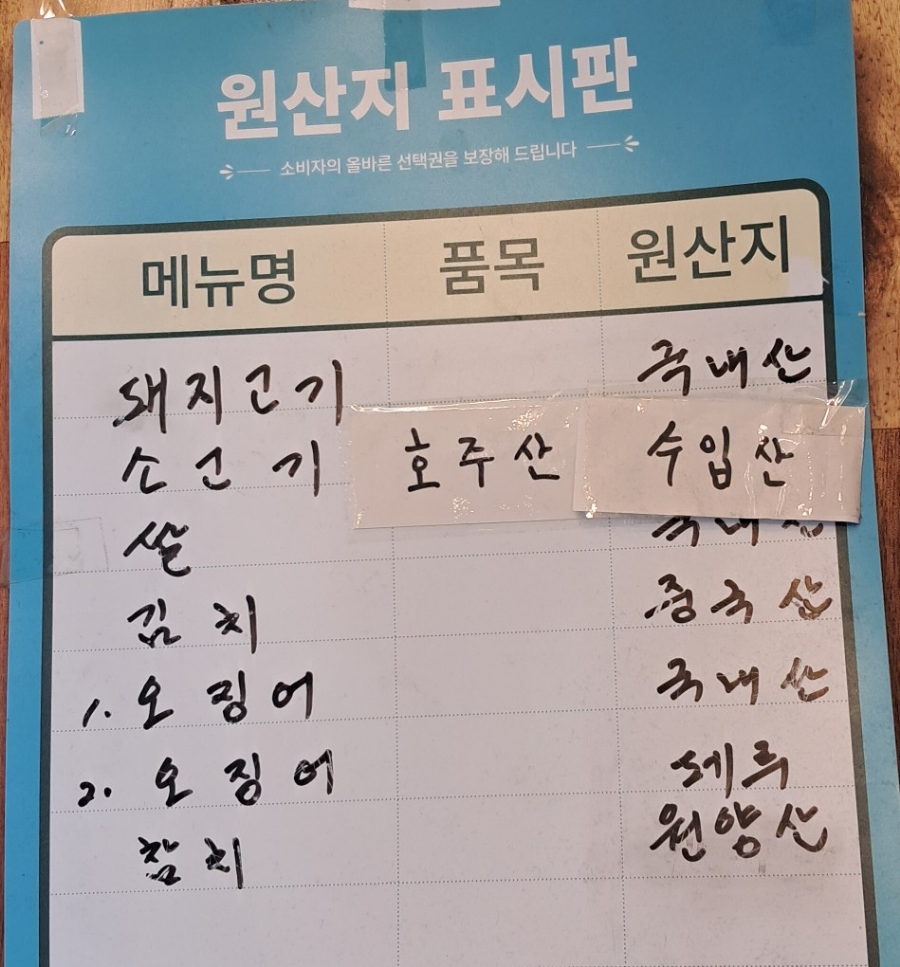 원산지 표시판
소비자의 올바른 선택권을 보장해 드립니다
메뉴명 품목 원산지
돼지고기 국내산
소고기 호주산 수입산
쌀 국내산
김치 중국산
1. 오징어 국내산
2. 오징어 페루
참치 원양산